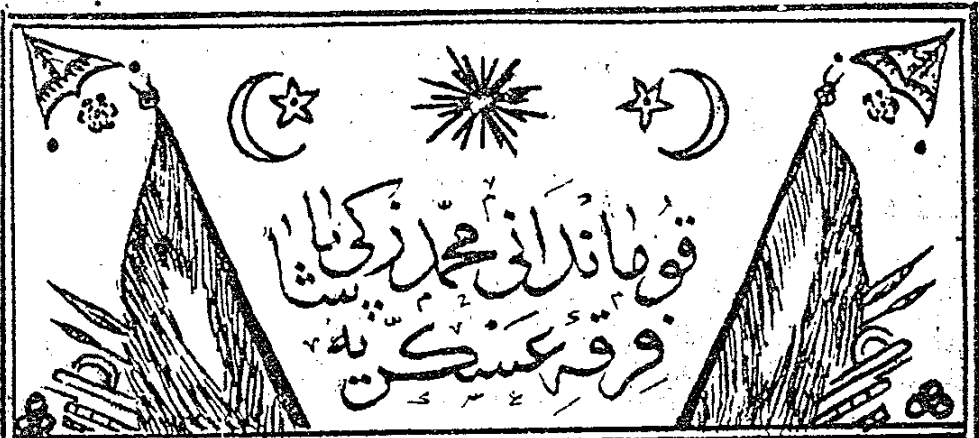 قوماندانى محمّد زكى پاشا
فرقهٔ عسكريه